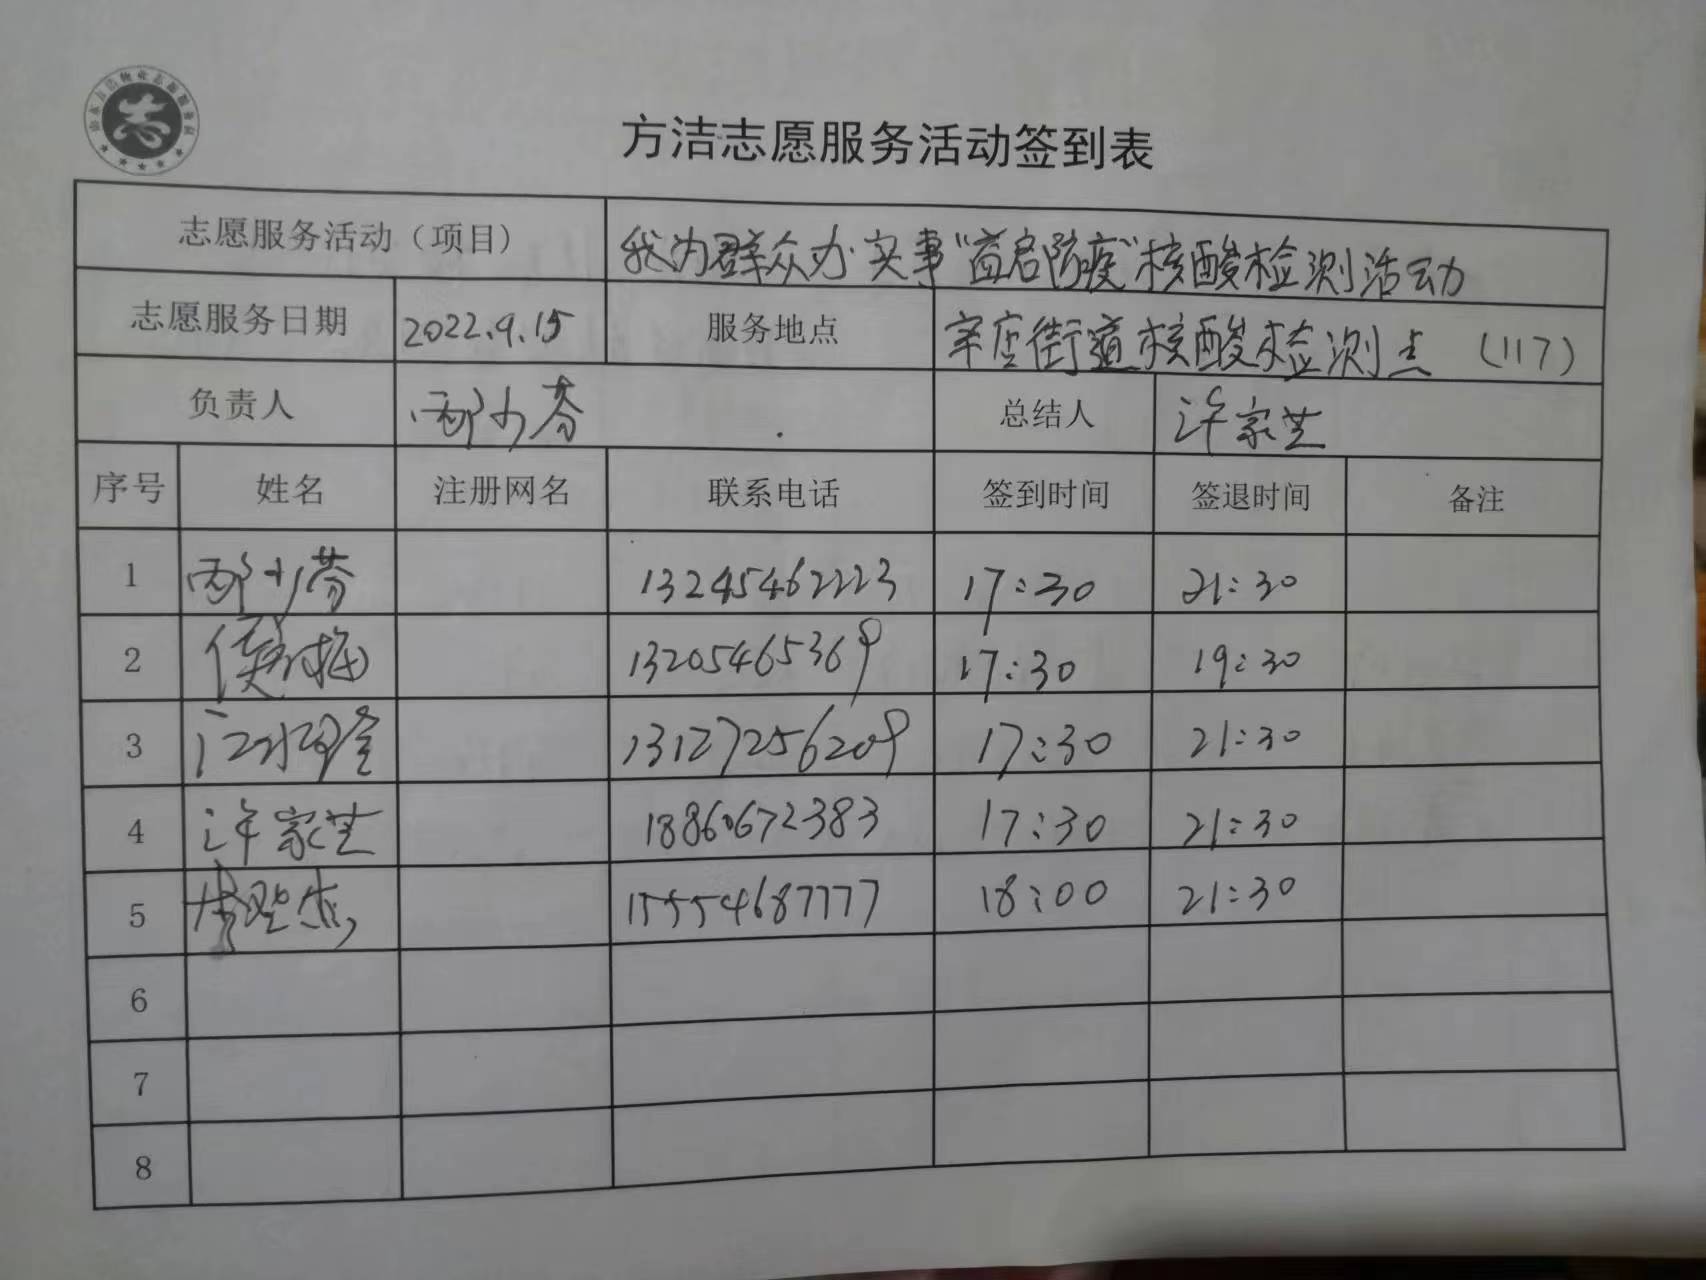 方洁志愿服务活动签到表
志愿服务活动（项目） 我为群众办实事“益启防疫”核酸检测活动
志愿服务日期 2022.9.15 服务地点 辛店街道核酸检测点 (117)
负责人 邴少芬 总结人 许家芝
序号 姓名 注册网名 联系电话 签到时间 签退时间 备注
1 邴少芬 13245462223 17:30 21:30
2 13205465369 17:30 19:30
3 13127256209 17:30 21:30
4 许家芝 18860672383 17:30 21:30
5 15554687777 18:00 21:30
6
7
8